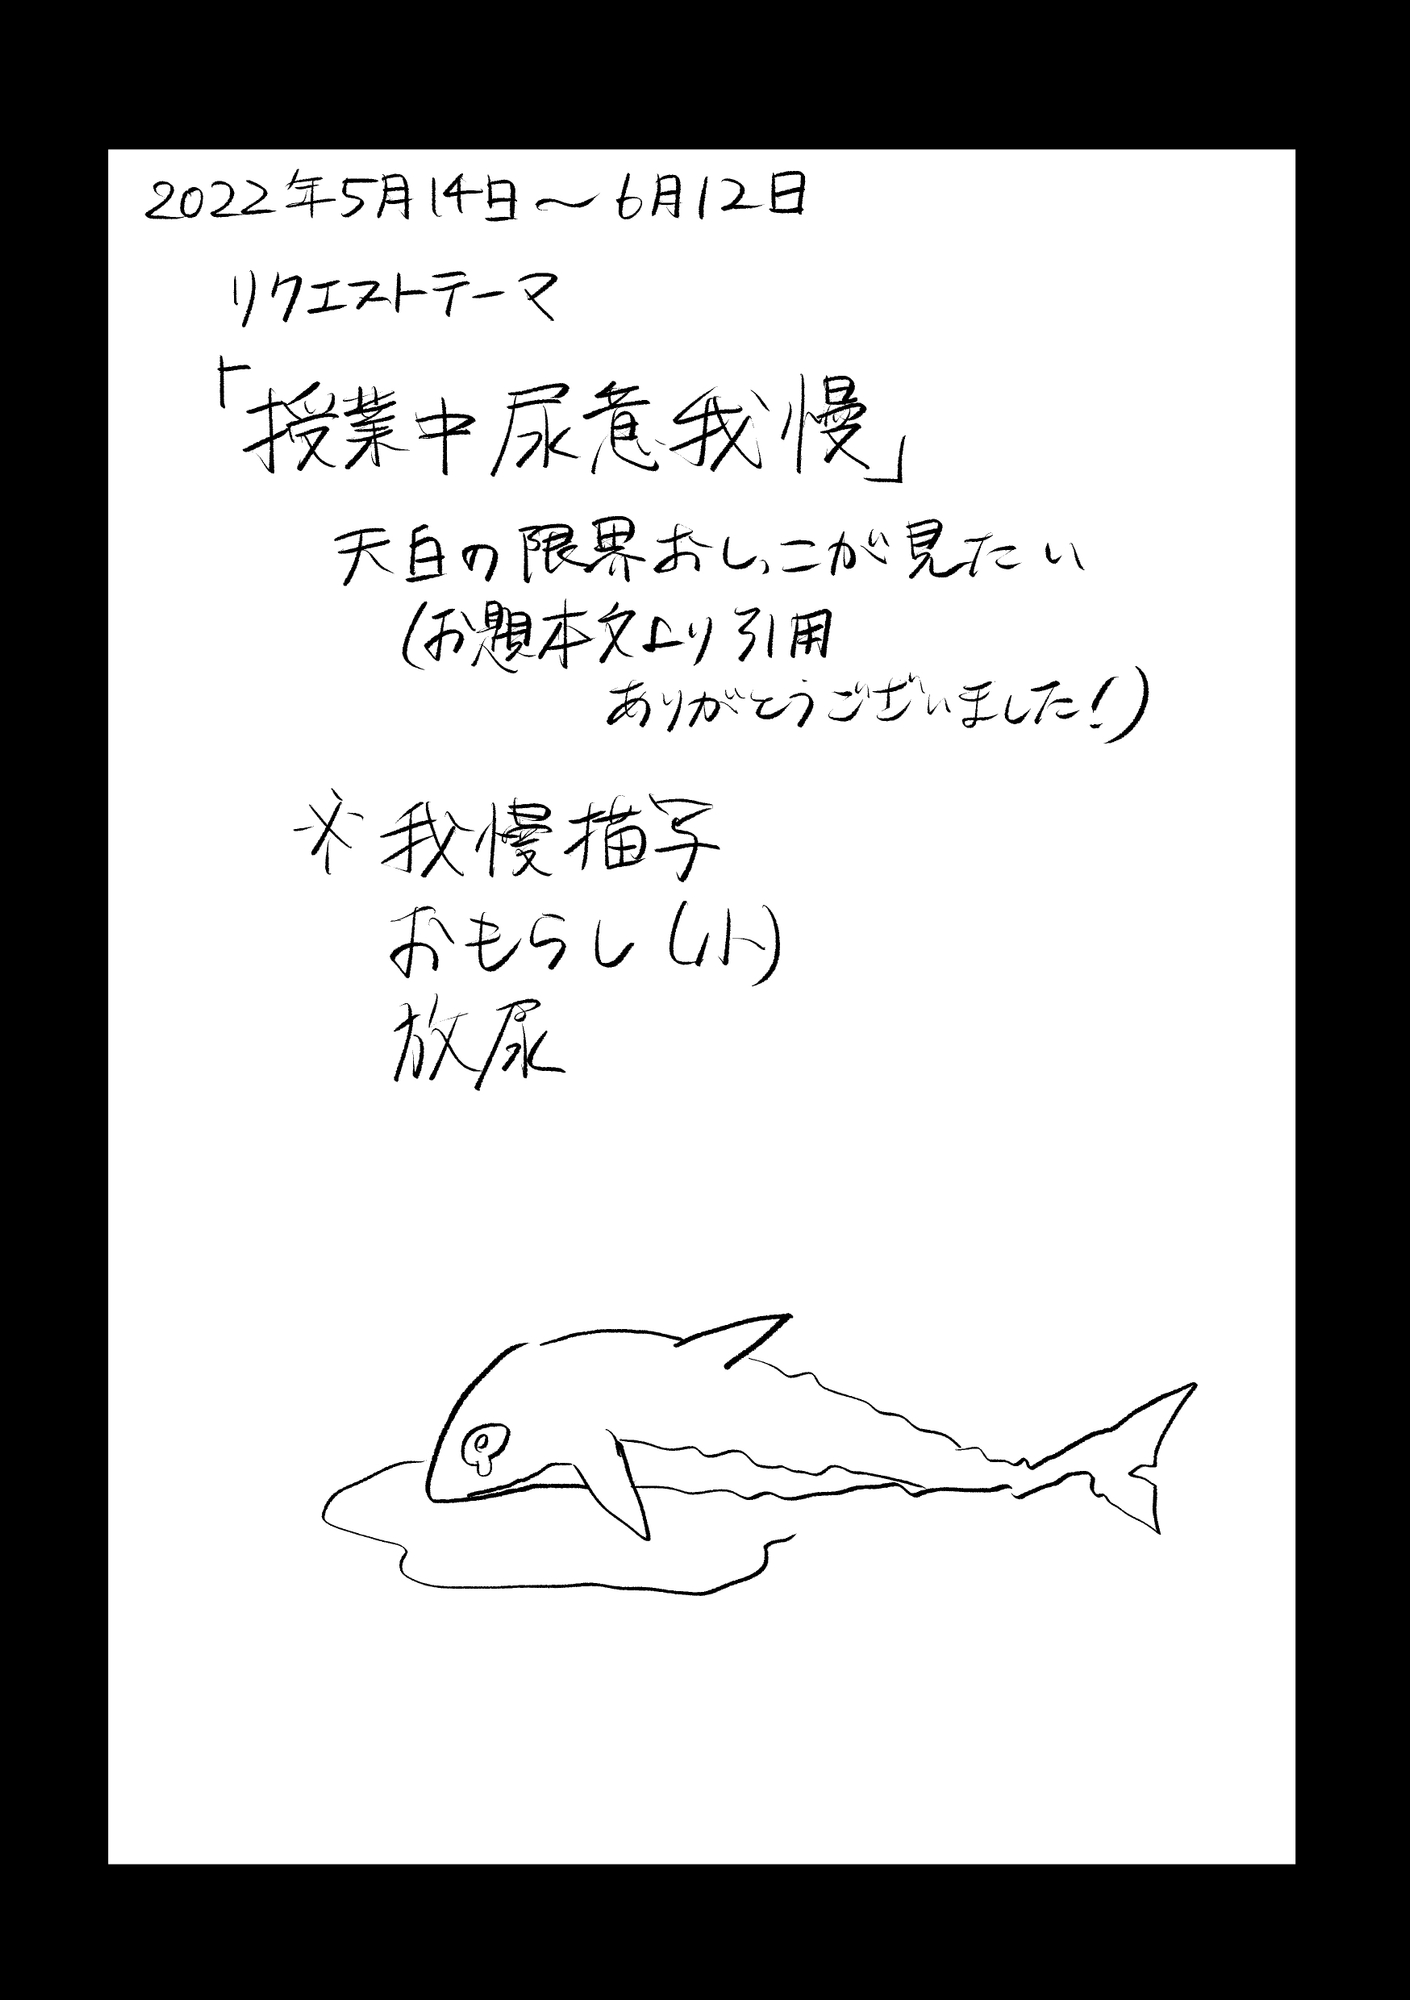 2022年5月14日～6月12日
リクエストテーマ
「授業中尿意我慢」
天白の限界おしっこが見たい
(お題本文より引用
ありがとうございました!)
※我慢描写
おもらし(小)
放尿